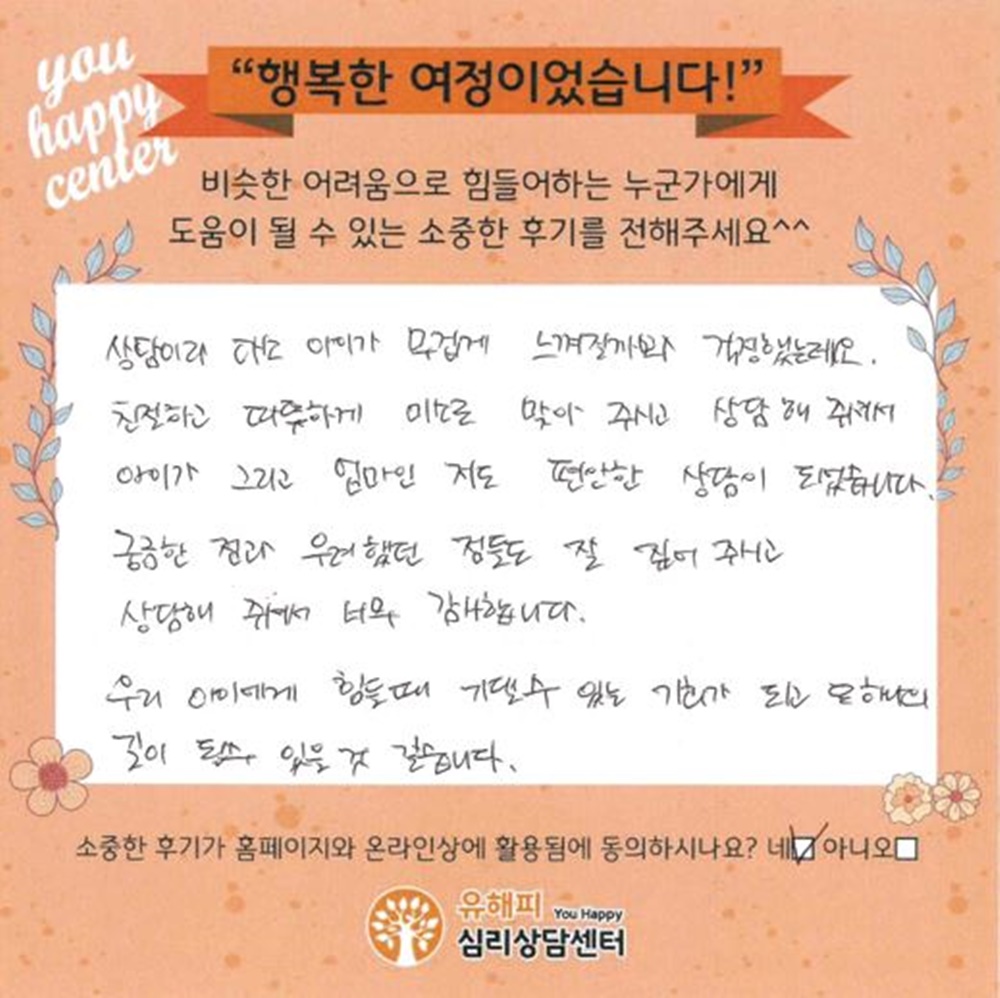 you
happy
center
“행복한 여정이었습니다!”
비슷한 어려움으로 힘들어하는 누군가에게
도움이 될 수 있는 소중한 후기를 전해주세요^^
상담이라 해서 아이가 무겁게 느껴질까봐 걱정했는데요.
친절하고 따뜻하게 미소로 맞아 주시고 상담해 주셔서
아이가 그리고 엄마인 저도 편안한 상담이 되었습니다.
궁금한 점과 우려했던 점들도 잘 짚어 주시고
상담해 주셔서 너무 감사합니다.
우리 아이에게 힘들때 기댈수 있는 기회가 되고 또 하나의
길이 될수 있을 것 같습니다.
소중한 후기가 홈페이지와 온라인상에 활용됨에 동의하시나요? 네 아니오
유해피 You Happy
심리상담센터